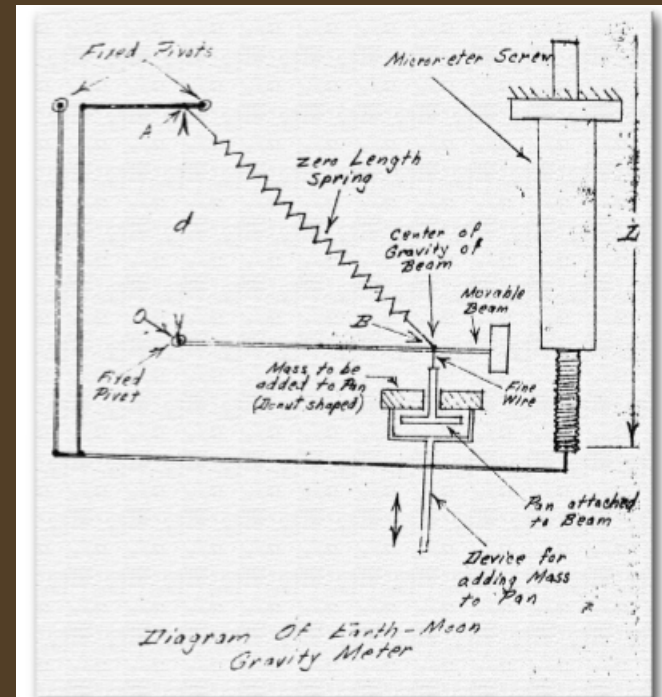 Fixed Pivots
Micrometer Screw
A
zero Length
Spring
d
Center of
Gravity of
Beam
L
Movable
Beam
O
B
Fixed
Pivot
Mass to be
added to Pan
(Donut shaped)
Fine
Wire
Pan attached
to Beam
Device for
adding Mass
to Pan
Diagram Of Earth-Moon
Gravity Meter